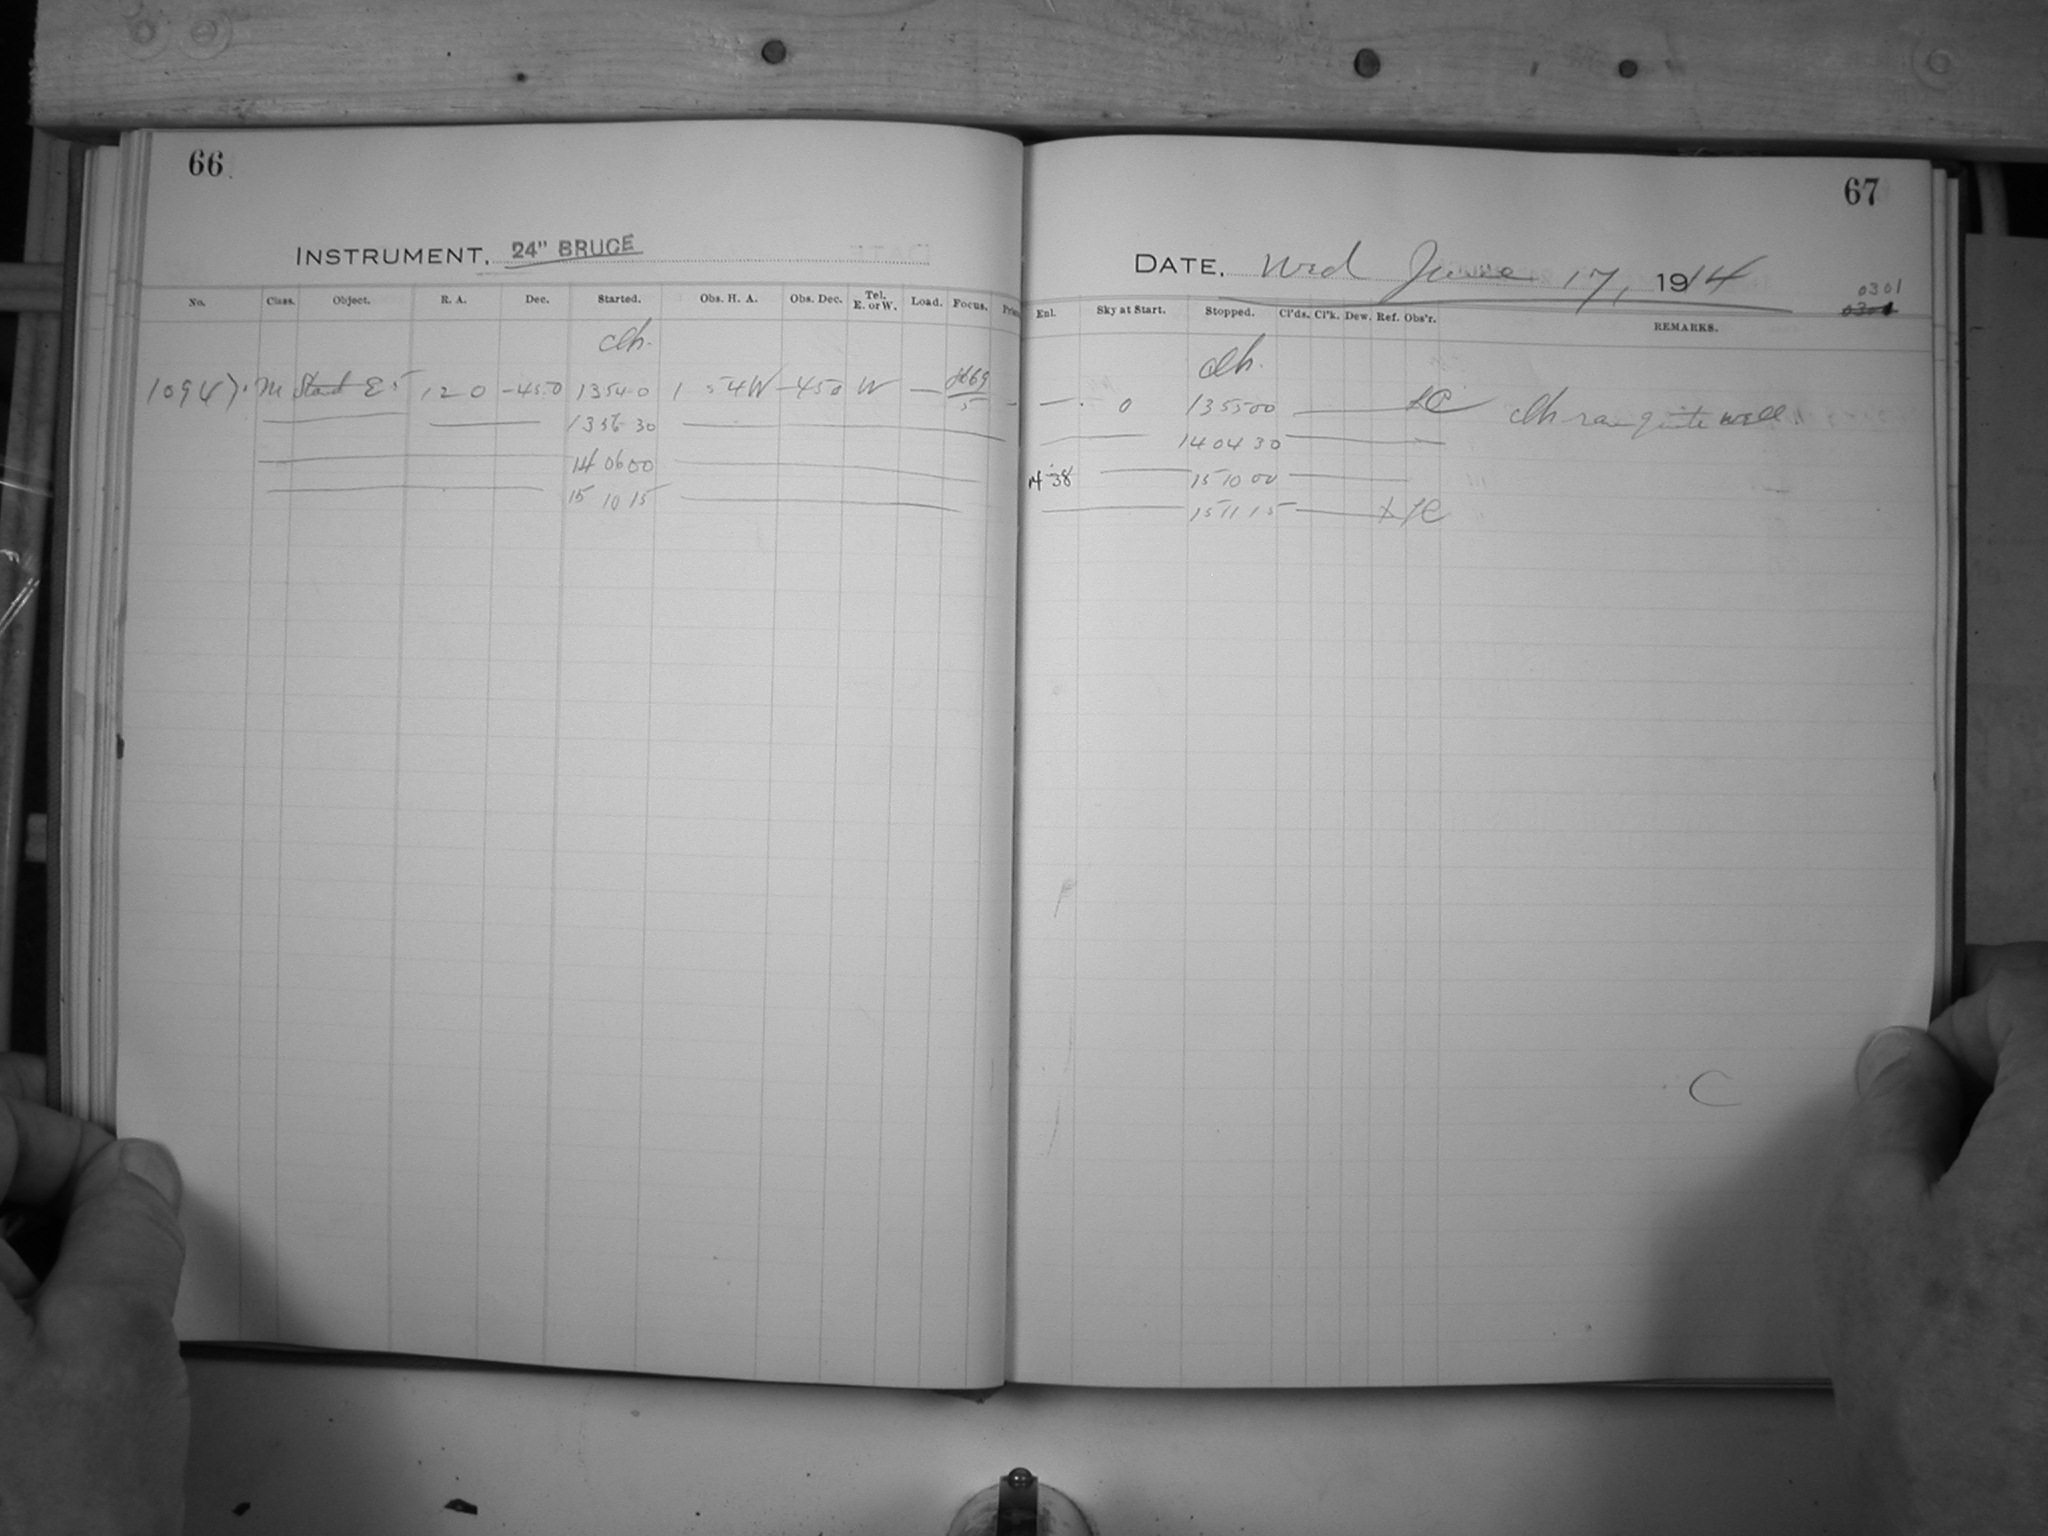 66
INSTRUMENT, 24" BRUCE
No. Class. Object. R. A. Dec. Started. Obs. H. A. Obs. Dec. Tel. E. or W. Load. Focus.
Clh.
M Stand E5 12 0 -45.0 1354 0 1 54W -450 W —
5
14 06 00
15 10 15
67
DATE, Wed June 17, 1914
0301
Enl. Sky at Start. Stopped. Cl'ds. Cl'k. Dew. Ref. Obs'r. REMARKS.
Clh.
0 135500 LC Clh ran quite well
14 04 30
15 10 00
15 11 15
C